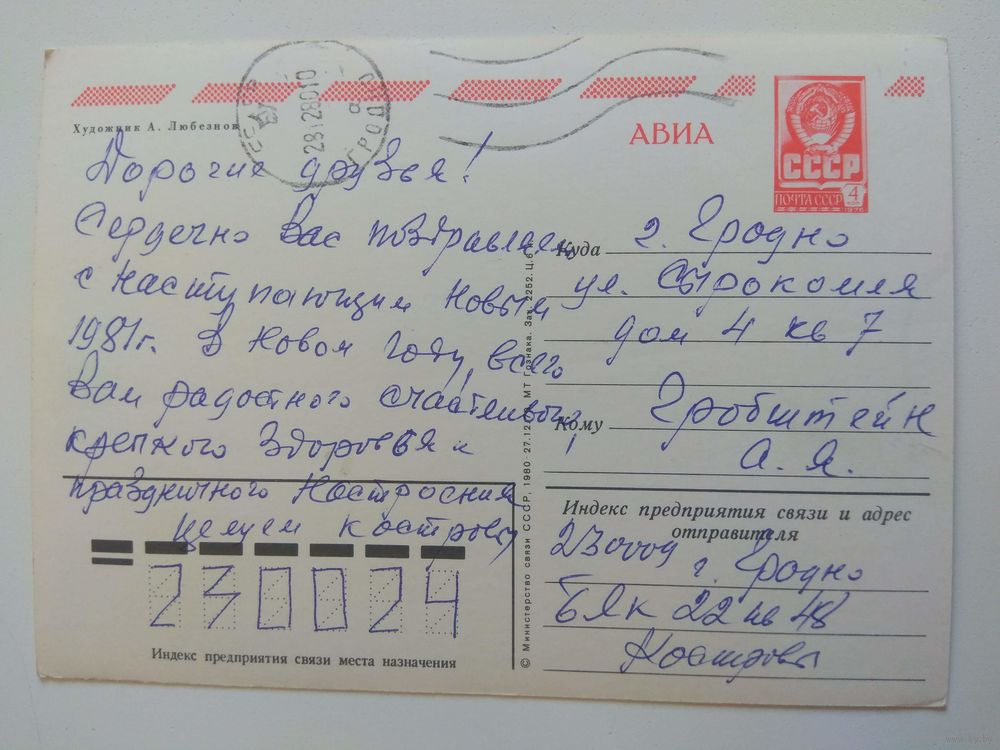 Художник А. Любезнов
АВИА
СССР
ПОЧТА СССР
4
коп
1976
281280 10
ГРОДНО
Дорогие друзья!
Сердечно Вас поздравляем
с наступающим Новым
1981г. В Новом году всего
Вам радостного счастливого,
крепкого здоровья и
праздничного настроения
Целуем Костровы
230024
Индекс предприятия связи места назначения
© Министерство связи СССР, 1980. 27.12. МТ Гознака. Зак. 2252. Ц. 6 к
Куда г. Гродно
ул. Сырокомля
дом 4 кв 7
Кому Гробштейн
А. Я.
Индекс предприятия связи и адрес
отправителя
230009
г. Гродно
БЛК 22 кв 48
Костровы